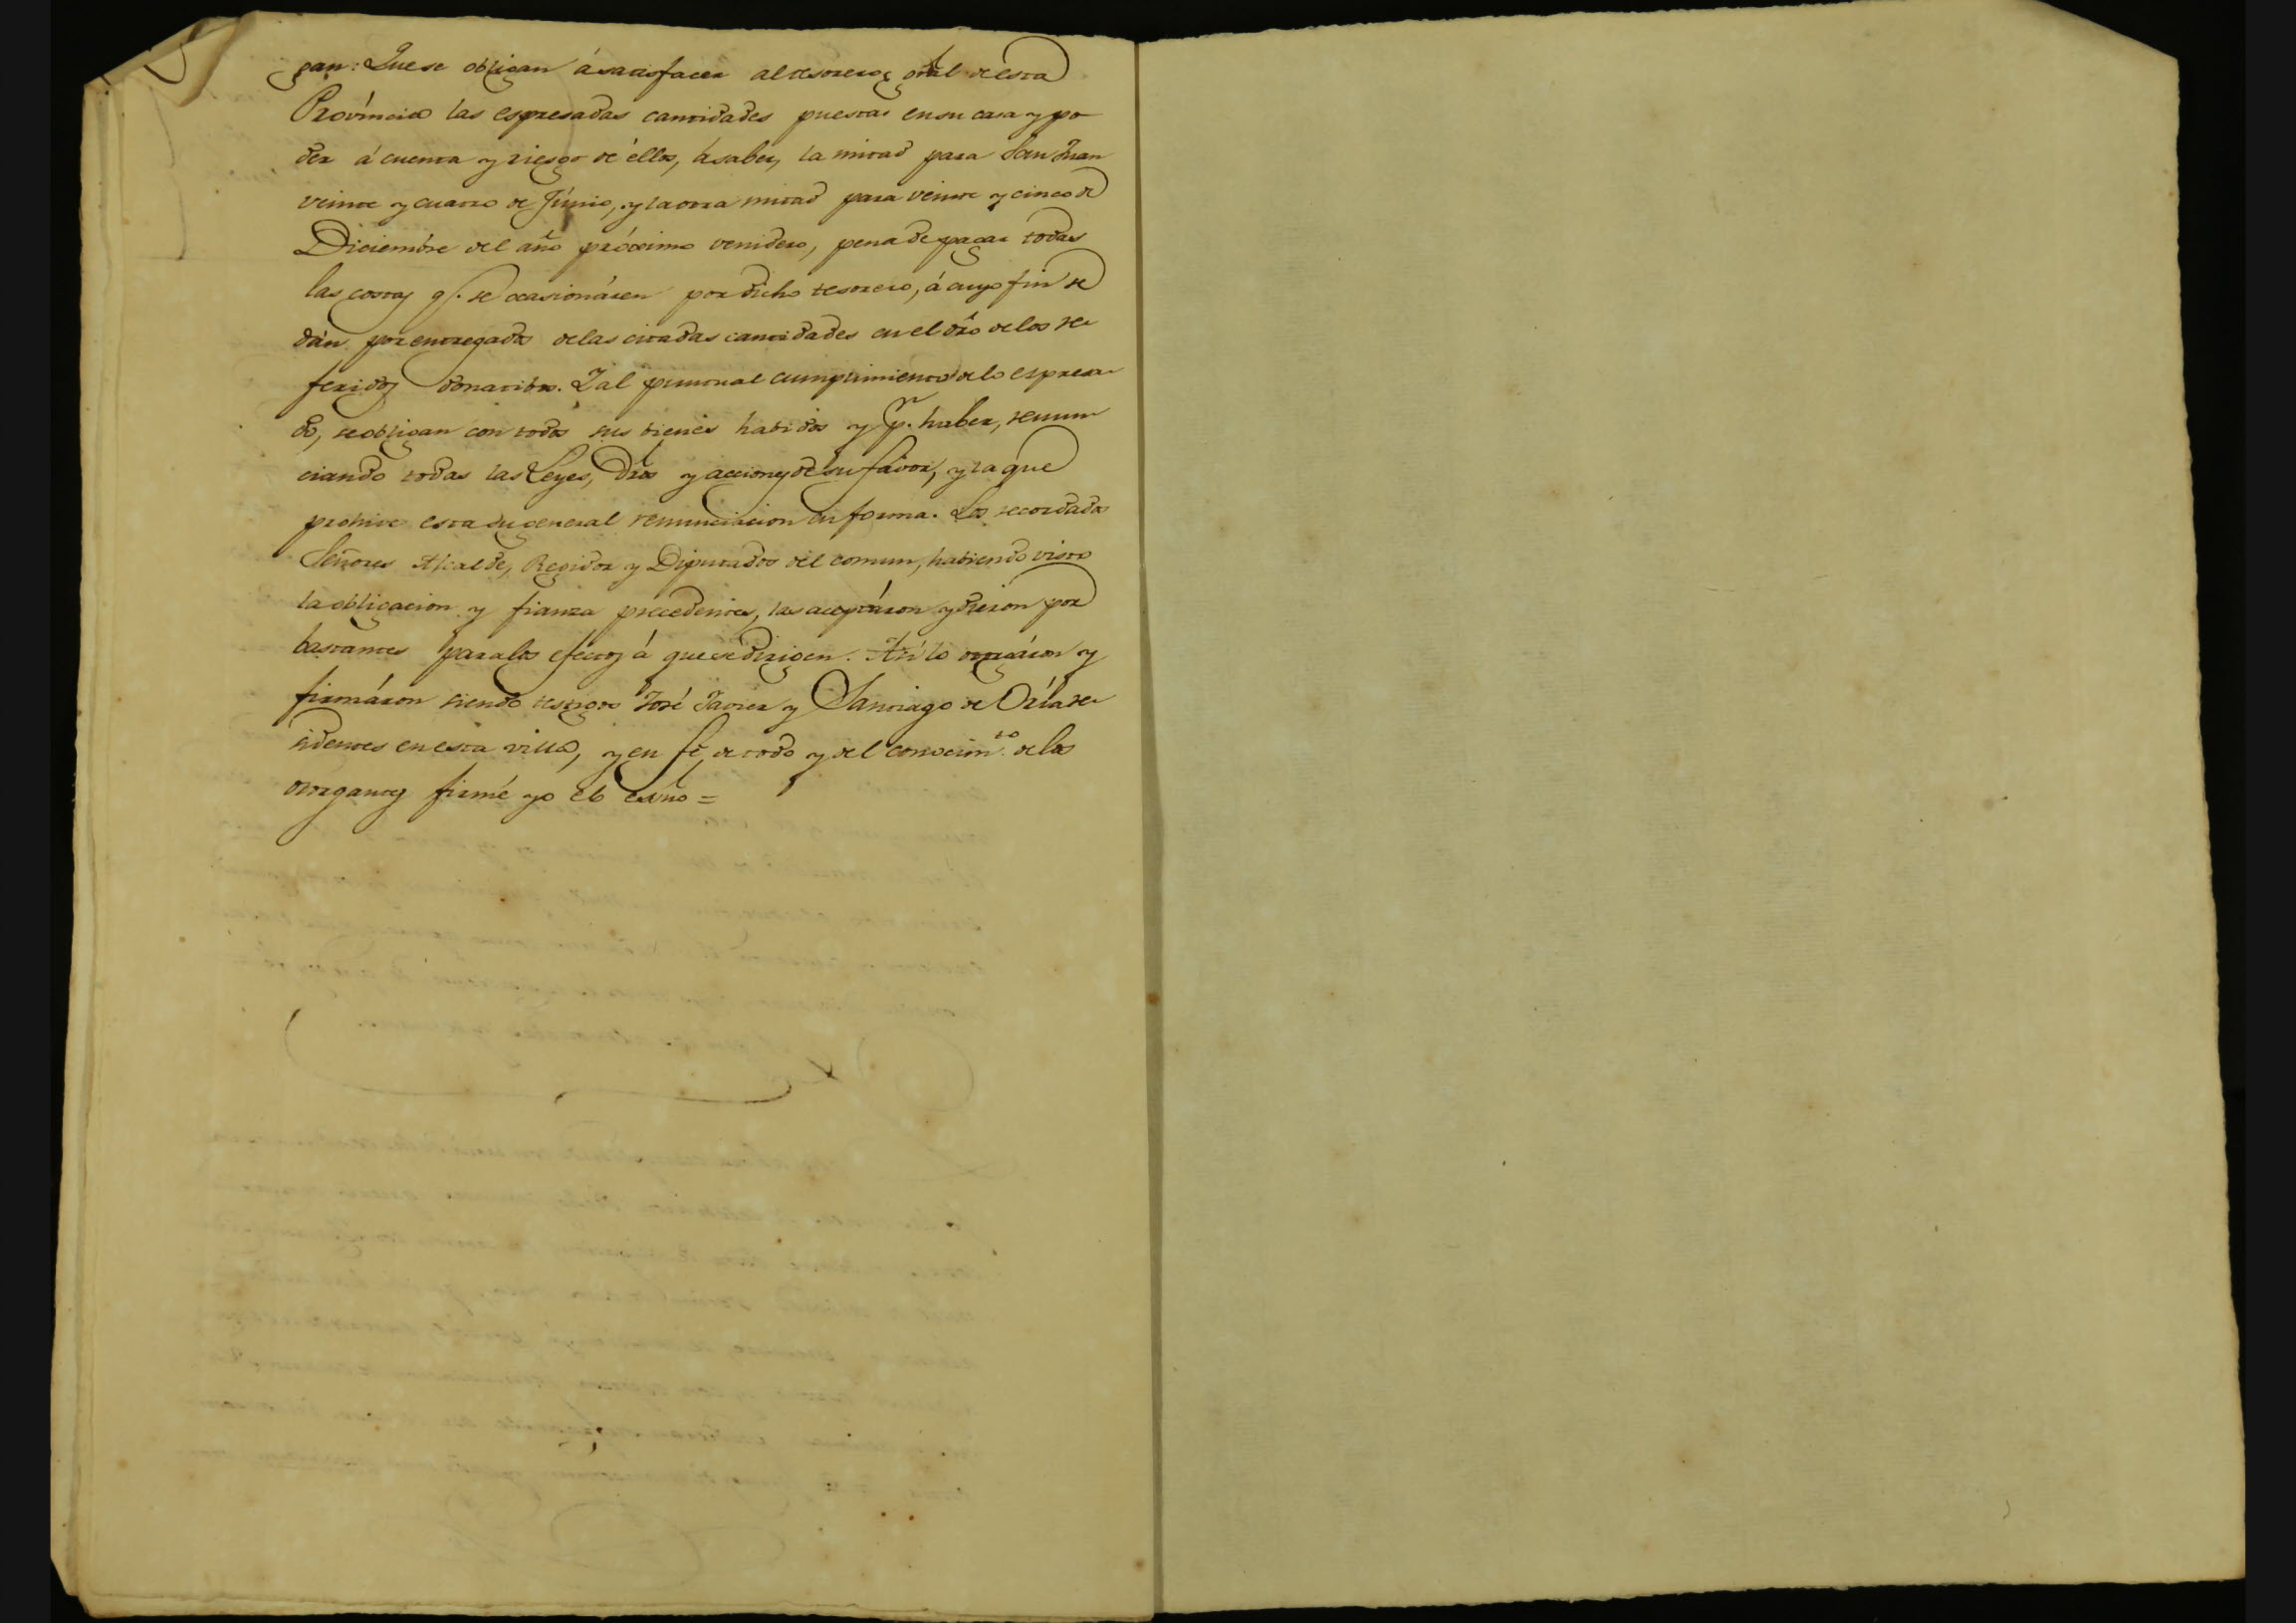 gan: Que se obligan á satisfacer al tesorero gral de esta
Provincia las espresadas cantidades puestas en su casa y po
der á cuenta y riesgo de éllos, á saber, la mitad para San Juan
veinte y cuatro de Júnio, y la otra mitad para veinte y cinco de
Diciembre del año próximo venidero, pena de pagar todas
las costas q.e se ocasionáren por dicho tesorero, á cuyo fin se
dán por entregados de las citadas cantidades en el dro de los re
feridos donatibos. Y al puntual cumplimiento de lo espresa
do, se obligan con todos sus bienes habidos y p.r haber, renun
ciando todas las Leyes, dros y acciones de su favor, y la que
prohive esta su general renunciacion en forma. Los recordados
Señores Alcalde, Regidor y Diputados del comun, habiendo visto
la obligacion y fianza precedentes, las aceptáron y diéron por
bastantes para los efectos á que se dirigen. Así lo otorgáron y
firmáron siendo testigos José Javier y Santiago de Orla re
sidentes en esta villa, y en fé de todo y del conocim.to de los
otorgantes firmé yo el esno =